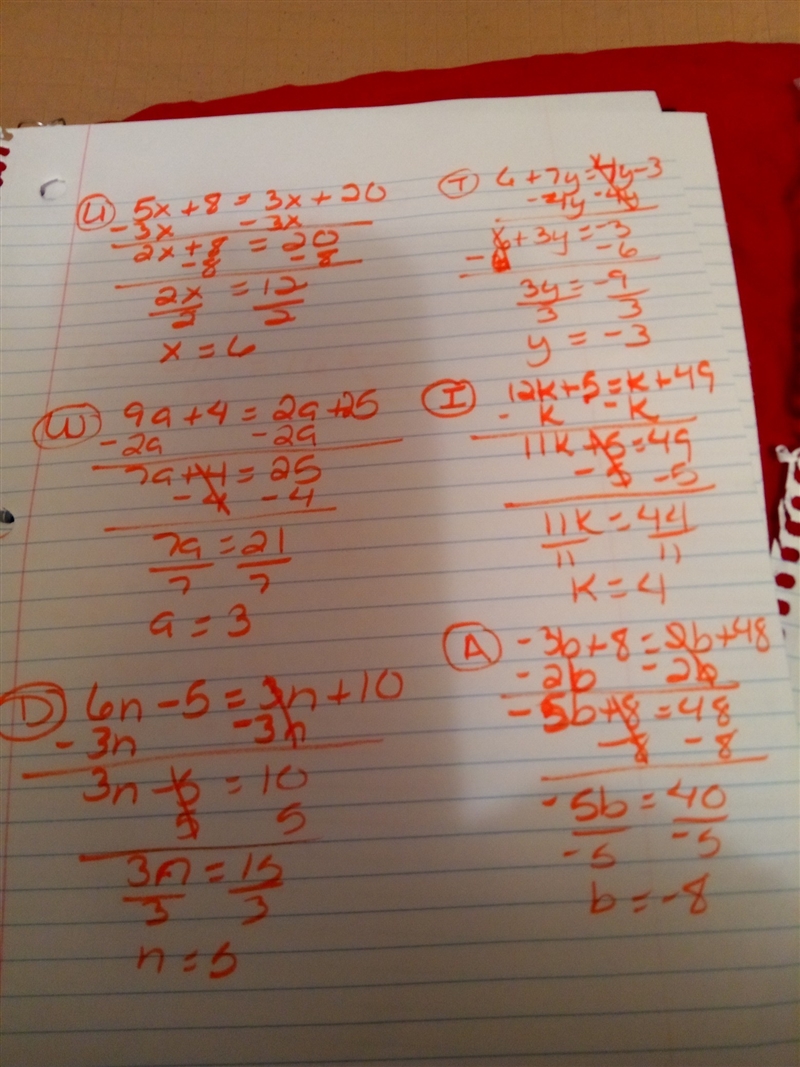 U 5x + 8 = 3x + 20
-3x -3x
2x + 8 = 20
-8 -8
2x = 12
2 2
x = 6
W 9a + 4 = 2a + 25
-2a -2a
7a + 4 = 25
-4 -4
7a = 21
7 7
a = 3
D 6n - 5 = 3n + 10
-3n -3n
3n - 5 = 10
5 5
3n = 15
3 3
n = 5
T 6 + 7y = 4y - 3
-4y -4y
6 + 3y = -3
-6 -6
3y = -9
3 3
y = -3
I 12k + 5 = k + 49
-k -k
11k + 5 = 49
-5 -5
11k = 44
11 11
k = 4
A -3b + 8 = 2b + 48
-2b -2b
-5b + 8 = 48
-8 -8
-5b = 40
-5 -5
b = -8